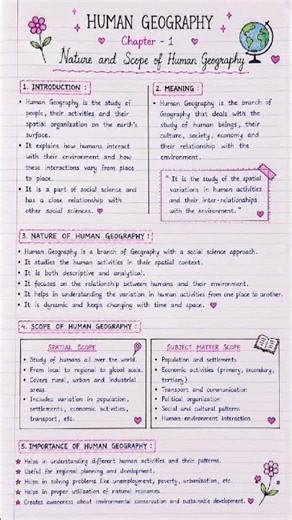 HUMAN GEOGRAPHY
Chapter - 1
Nature and Scope of Human Geography
1. INTRODUCTION :
• Human Geography is the study of
people, their activities and their
spatial organisation on the earth's
surface.
• It explains how humans interact
with their environment and how
these interactions vary from place
to place.
• It is a part of social science and
has a close relationship with
other social sciences.
2. MEANING :
• Human Geography is the branch of
Geography that deals with the
study of human beings, their
culture, society, economy and
their relationship with the
environment.
" It is the study of the spatial
variations in human activities
and their inter-relationships
with the environment. "
3. NATURE OF HUMAN GEOGRAPHY :
• Human Geography is a branch of Geography with a social science approach.
• It studies the human activities in their spatial context.
• It is both descriptive and analytical.
• It focuses on the relationship between humans and their environment.
• It helps in understanding the variation in human activities from one place to another.
• It is dynamic and keeps changing with time and space.
4. SCOPE OF HUMAN GEOGRAPHY :
SPATIAL SCOPE
• Study of humans all over the world.
• From local to regional to global scale.
• Covers rural, urban and industrial
areas.
• Includes variation in population,
settlements, economic activities,
transport, etc.
SUBJECT MATTER SCOPE
• Population and settlements
• Economic activities (primary, secondary,
tertiary)
• Transport and communication
• Political organisation
• Social and cultural patterns
• Human-environment interaction
5. IMPORTANCE OF HUMAN GEOGRAPHY :
★ Helps in understanding different human activities and their patterns.
★ Useful for regional planning and development.
★ Helps in solving problems like unemployment, poverty, urbanisation, etc.
★ Helps in proper utilisation of natural resources.
★ Creates awareness about environmental conservation and sustainable development.